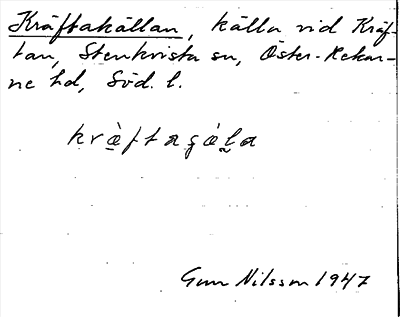 Kräftakällan, källa vid Kräf-
tan, Stenkvista sn, Öster-Rekar-
ne hd, Söd. l.
kràftagáḷa
Gun Nilsson 1947